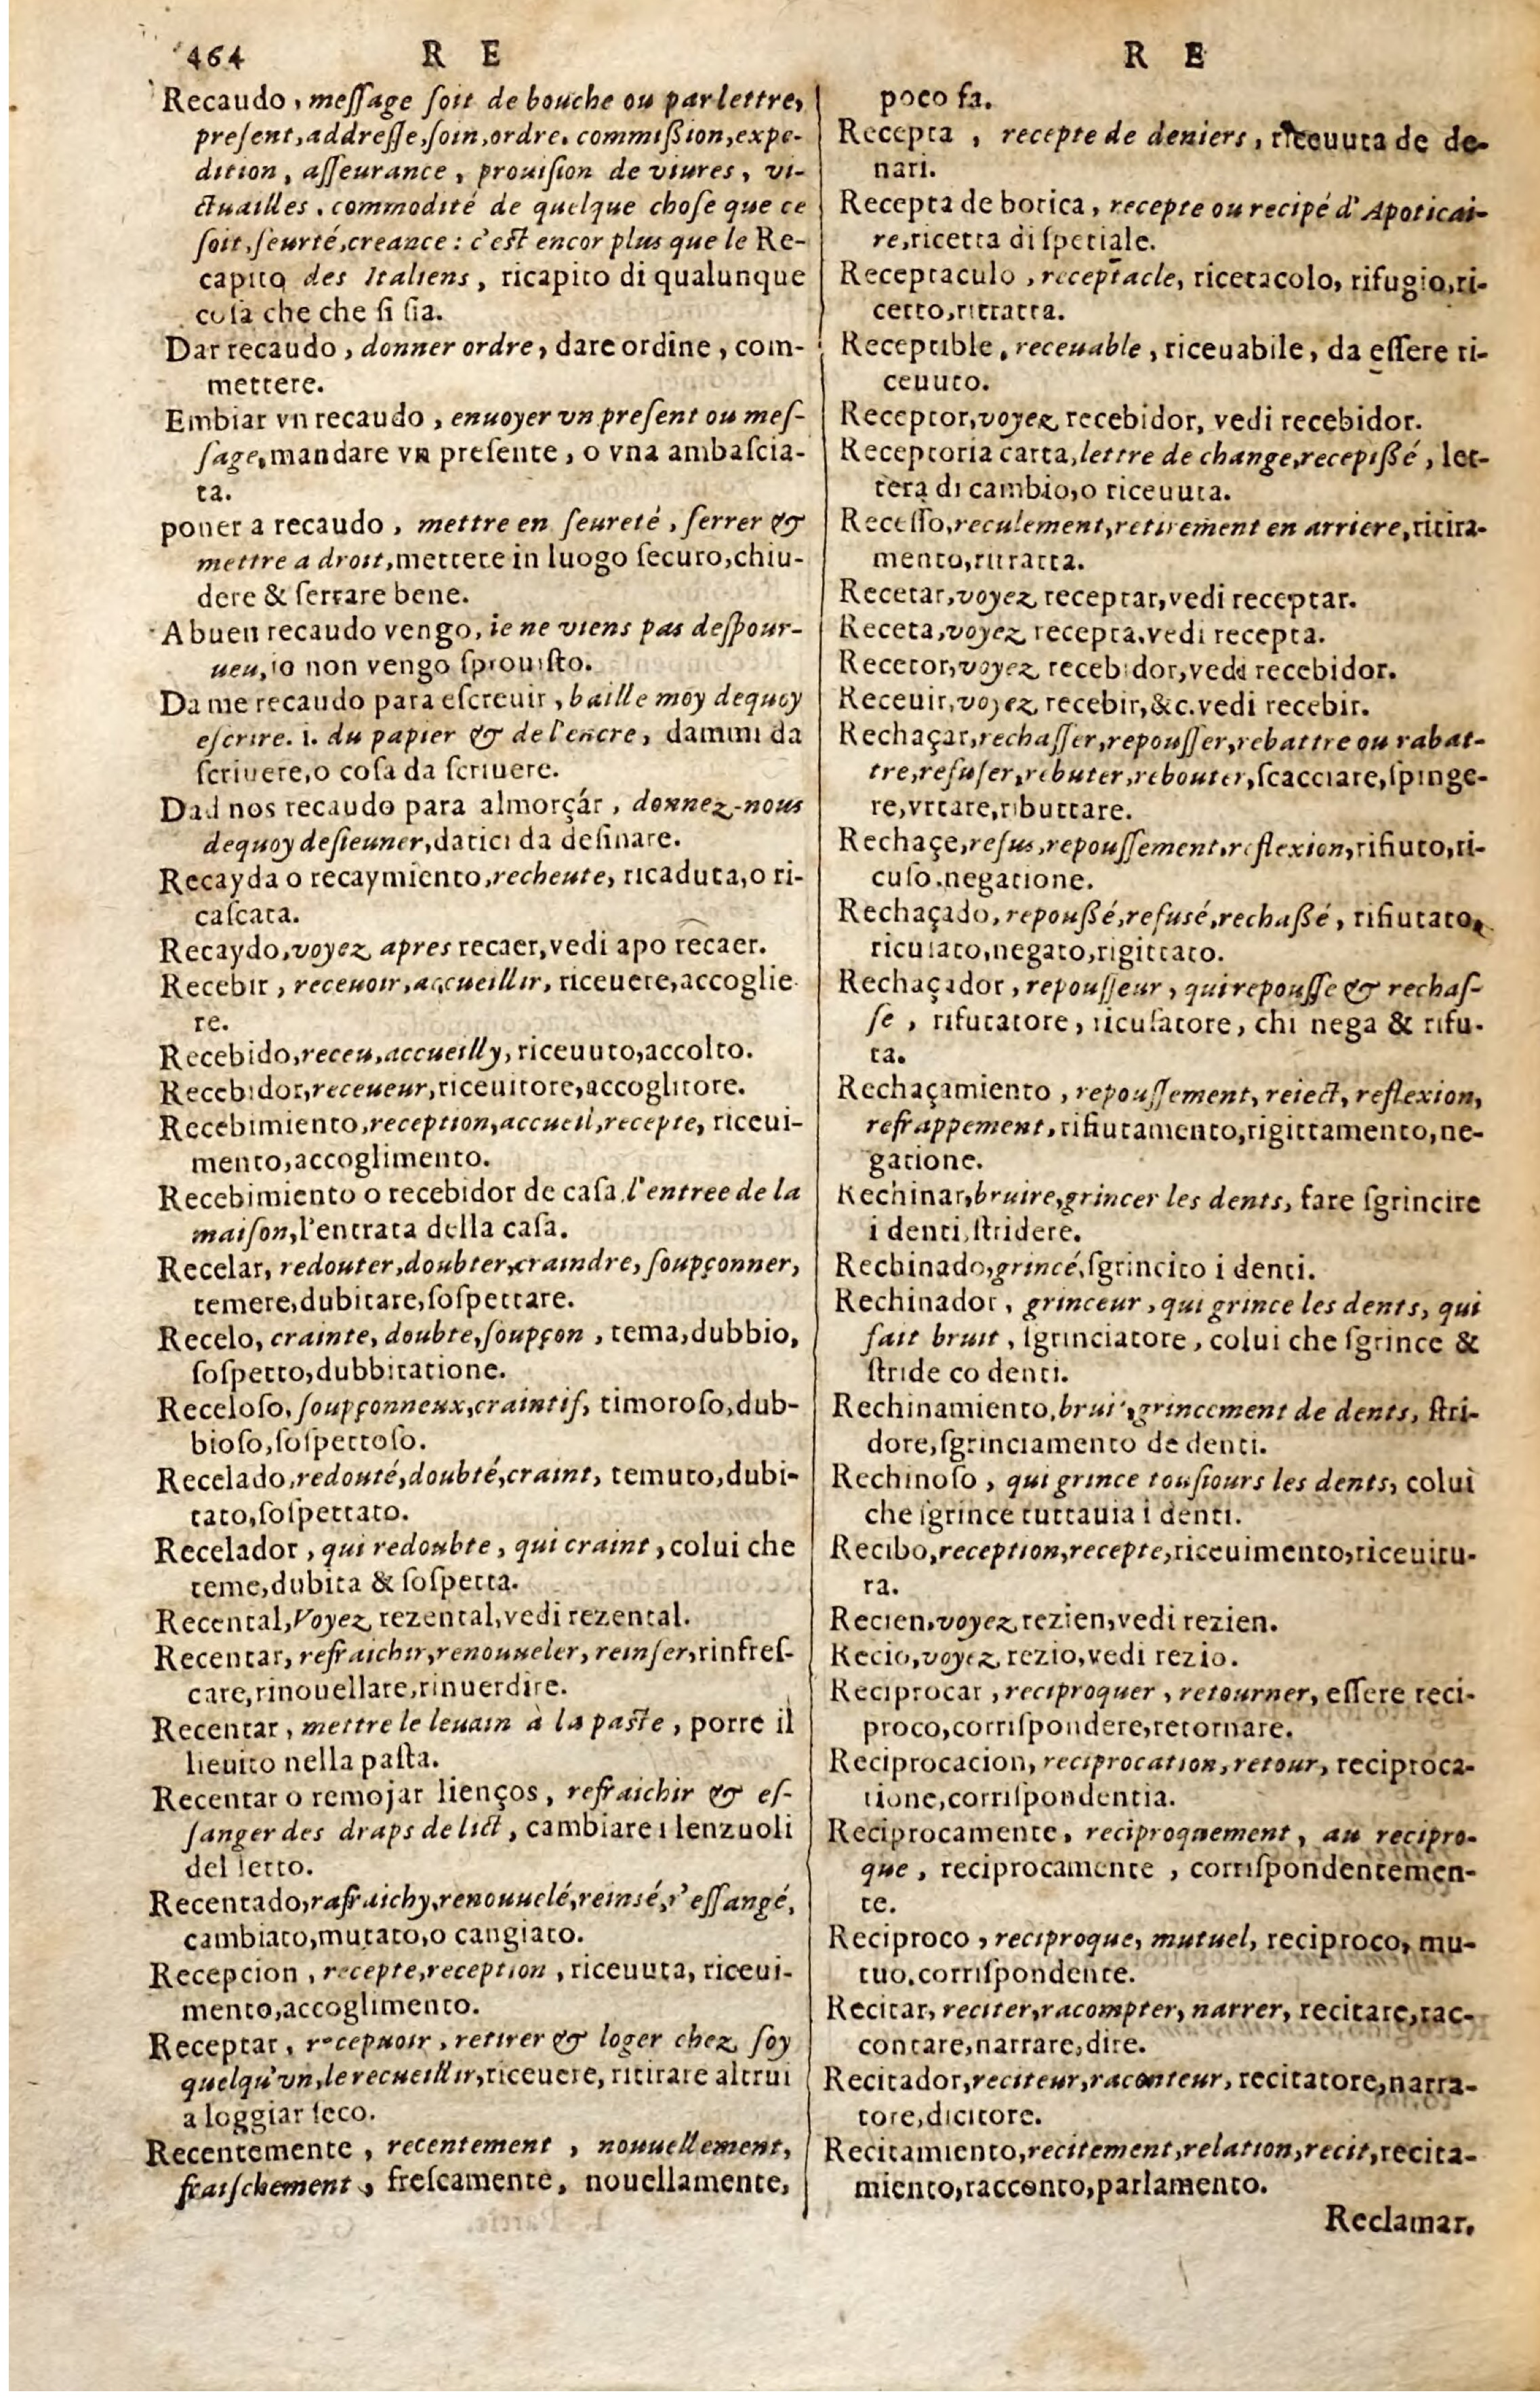 464 R E R E
Recaudo, meſſage ſoit de bouche ou par lettre,
preſent, addreſſe, ſoin, ordre, commiſsion, expe-
dition, aſſeurance, prouiſion de viures, vi-
ctuailles, commodité de quelque choſe que ce
ſoit, ſeurté, creance: c'eſt encor plus que le Re-
capito des Italiens, ricapito di qualunque
coſa che che ſi ſia.
Dar recaudo, donner ordre, dare ordine, com-
mettere.
Embiar vn recaudo, enuoyer vn preſent ou meſ-
ſage, mandare vn preſente, o vna ambaſcia-
ta.
poner a recaudo, mettre en ſeureté, ſerrer &
mettre a droit, mettere in luogo ſecuro, chiu-
dere & ſerrare bene.
A buen recaudo vengo, ie ne viens pas deſpour-
ueu, io non vengo ſprouiſto.
Da me recaudo para eſcreuir, baille moy dequoy
eſcrire. i. du papier & de l'encre, dammi da
ſcriuere, o coſa da ſcriuere.
Dad nos recaudo para almorçár, donnez-nous
dequoy deſieuner, datici da deſinare.
Recayda o recaymiento, recheute, ricaduta, o ri-
caſcata.
Recaydo, voyez apres recaer, vedi apo recaer.
Recebir, receuoir, accueillir, riceuere, accoglie
re.
Recebido, receu, accueilly, riceuuto, accolto.
Recebidor, receueur, riceuitore, accoglitore.
Recebimiento, reception, accueil, recepte, riceui-
mento, accoglimento.
Recebimiento o recebidor de caſa, l'entree de la
maiſon, l'entrata della caſa.
Recelar, redouter, doubter, craindre, ſoupçonner,
temere, dubitare, ſoſpettare.
Recelo, crainte, doubte, ſoupçon, tema, dubbio,
ſoſpetto, dubbitatione.
Receloſo, ſoupçonneux, craintif, timoroſo, dub-
bioſo, ſoſpettoſo.
Recelado, redouté, doubté, craint, temuto, dubi-
tato, ſoſpettato.
Recelador, qui redoubte, qui craint, colui che
teme, dubita & ſoſpetta.
Recental, Voyez rezental, vedi rezental.
Recentar, refraichir, renouueler, reinſer, rinfreſ-
care, rinouellare, rinuerdire.
Recentar, mettre le leuain à la paſte, porre il
lieuito nella paſta.
Recentar o remojar lienços, refraichir & eſ-
ſanger des draps de lict, cambiare i lenzuoli
del letto.
Recentado, rafraichy, renouuelé, reinsé, r'eſſangé,
cambiato, mutato, o cangiato.
Recepcion, recepte, reception, riceuuta, riceui-
mento, accoglimento.
Receptar, recepuoir, retirer & loger chez ſoy
quelqu'vn, le recueillir, riceuere, ritirare altrui
a loggiar ſeco.
Recentemente, recentement, nouuellement,
fraiſchement, freſcamente, nouellamente,
poco fa.
Recepta, recepte de deniers, riceuuta de de-
nari.
Recepta de botica, recepte ou recipé d'Apoticai-
re, ricetta di ſpetiale.
Receptaculo, receptacle, ricetacolo, rifugio, ri-
cetto, ritratta.
Receptible, receuable, riceuabile, da eſſere ri-
ceuuto.
Receptor, voyez recebidor, vedi recebidor.
Receptoria carta, lettre de change, recepiſsé, let-
tera di cambio, o riceuuta.
Receſſo, reculement, retirement en arriere, ritira-
mento, ritratta.
Recetar, voyez receptar, vedi receptar.
Receta, voyez recepta, vedi recepta.
Recetor, voyez recebidor, vedi recebidor.
Receuir, voyez recebir, &c. vedi recebir.
Rechaçar, rechaſſer, repouſſer, rebattre ou rabat-
tre, refuſer, rebuter, rebouter, ſcacciare, ſpinge-
re, vrtare, ributtare.
Rechaçe, refus, repouſſement, reflexion, rifiuto, ri-
cuſo, negatione.
Rechaçado, repouſsé, refusé, rechaſsé, rifiutato,
ricuſato, negato, rigittato.
Rechaçador, repouſſeur, qui repouſſe & rechaſ-
ſe, rifutatore, ricuſatore, chi nega & rifu-
ta.
Rechaçamiento, repouſſement, reiect, reflexion,
refrappement, rifiutamento, rigittamento, ne-
gatione.
Rechinar, bruire, grincer les dents, fare ſgrincire
i denti, ſtridere.
Rechinado, grincé, ſgrincito i denti.
Rechinador, grinceur, qui grince les dents, qui
fait bruit, ſgrinciatore, colui che ſgrince &
ſtride co denti.
Rechinamiento, bruit, grincement de dents, ſtri-
dore, ſgrinciamento de denti.
Rechinoſo, qui grince touſiours les dents, colui
che ſgrince tuttauia i denti.
Recibo, reception, recepte, riceuimento, riceuitu-
ra.
Recien, voyez rezien, vedi rezien.
Recio, voyez rezio, vedi rezio.
Reciprocar, reciproquer, retourner, eſſere reci-
proco, corriſpondere, retornare.
Reciprocacion, reciprocation, retour, reciproca-
tione, corriſpondentia.
Reciprocamente, reciproquement, au recipro-
que, reciprocamente, corriſpondentemen-
te.
Reciproco, reciproque, mutuel, reciproco, mu-
tuo, corriſpondente.
Recitar, reciter, racompter, narrer, recitare, rac-
contare, narrare, dire.
Recitador, reciteur, raconteur, recitatore, narra-
tore, dicitore.
Recitamiento, recitement, relation, recit, recita-
miento, racconto, parlamento.
Reclamar,